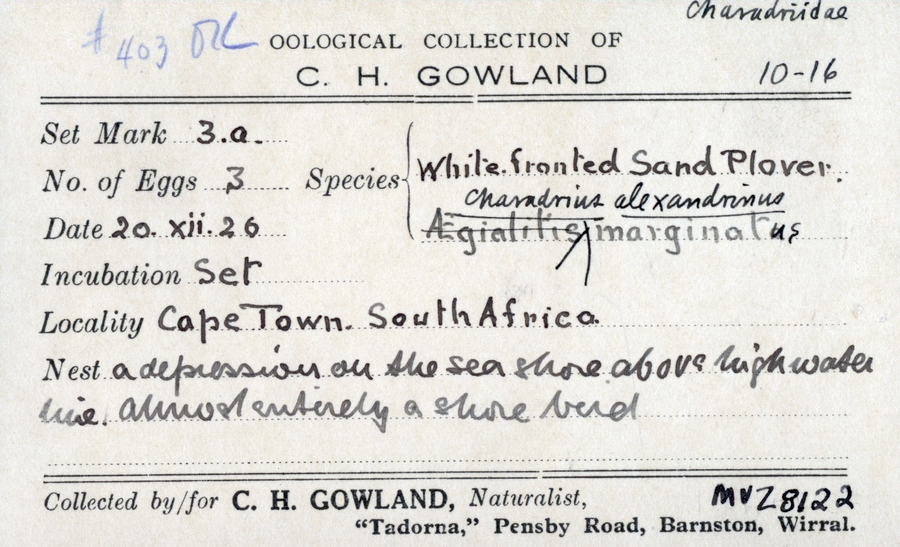 Charadriidae
# 403
OOLOGICAL COLLECTION OF
C. H. GOWLAND
10-16
Set Mark 3.a.
No. of Eggs 3
Species White.fronted Sand Plover.
Charadrius alexandrinus
Date 20. xii. 26
Ægialitis marginatus
Incubation Set
Locality Cape Town. South Africa
Nest a depression on the sea shore above high water
line. Almost entirely a shore bird
Collected by/for C. H. GOWLAND, Naturalist,
MVZ8122
"Tadorna," Pensby Road, Barnston, Wirral.